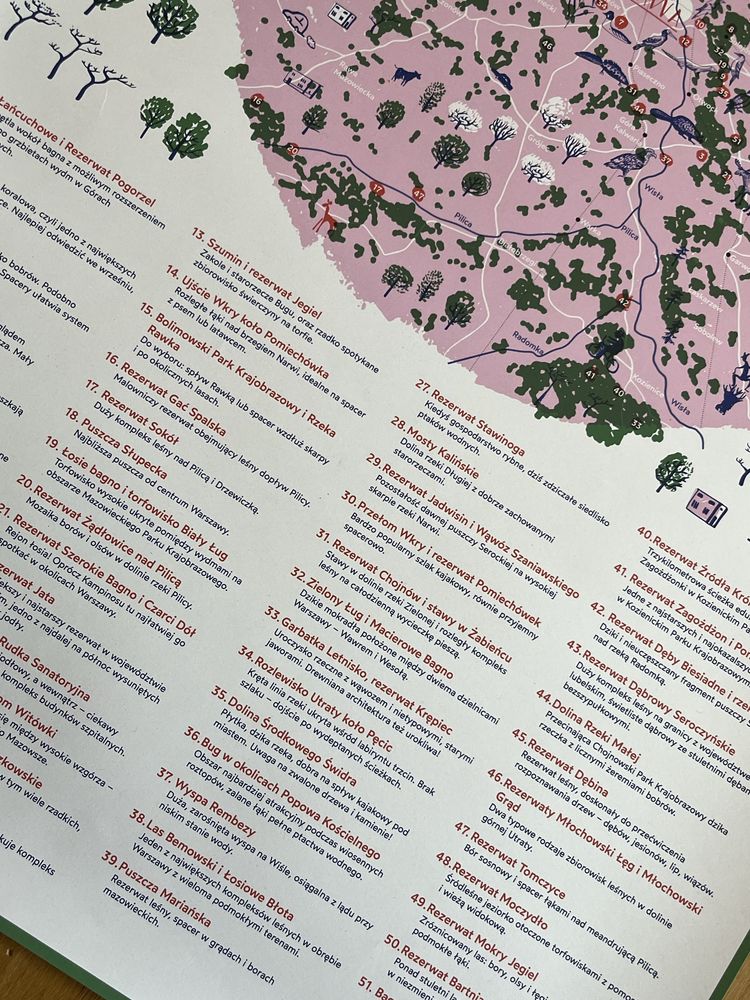 Rawa
Mazowiecka
Grójec
Góra
Kalwaria
Piaseczno
Otwock
Pilica
Pilica
Wisła
Radomka
Kozienice
Wisła
46
7
10
8
12
32
19
9
35
51
44
37
3
21
16
20
17
47
42
41
40
33
Łańcuchowe i Rezerwat Pogorzel
pętla wokół bagna z możliwym rozszerzeniem
po grzbietach wydm w Górach
koralowa, czyli jedno z największych
Najlepiej odwiedzić we wrześniu,
bobrów. Podobno
Spacery ułatwia system
Mały
13. Szumin i rezerwat Jegiel
Zakole i starorzecze Bugu oraz rzadko spotykane
zbiorowisko świerczyny na torfie.
14. Ujście Wkry koło Pomiechówka
Rozległe łąki nad brzegiem Narwi, idealne na spacer
z psem lub latawcem.
15. Bolimowski Park Krajobrazowy i Rzeka
Rawka
Do wyboru: spływ Rawką lub spacer wzdłuż skarpy
i po okolicznych lasach.
16. Rezerwat Gać Spalska
Malowniczy rezerwat obejmujący leśny dopływ Pilicy.
17. Rezerwat Sokół
Duży kompleks leśny nad Pilicą i Drzewiczką.
18. Puszcza Słupecka
Najbliższa puszcza od centrum Warszawy.
19. Łosie bagno i torfowisko Biały Ług
Torfowisko wysokie ukryte pomiędzy wydmami na
obszarze Mazowieckiego Parku Krajobrazowego.
20. Rezerwat Żądłowice nad Pilicą
Mozaika borów i olsów w dolinie rzeki Pilicy.
21. Rezerwat Szerokie Bagno i Czarci Dół
Rejon łosia! Oprócz Kampinosu tu najłatwiej go
spotkać w okolicach Warszawy.
Jata
i najstarszy rezerwat w województwie
jedno z najdalej na północ wysuniętych
jodły.
Rudka Sanatoryjna
a wewnątrz – ciekawy
kompleks budynków szpitalnych.
Witówki
między wysokie wzgórza –
Mazowsze.
w tym wiele rzadkich,
kompleks
27. Rezerwat Stawinoga
Kiedyś gospodarstwo rybne, dziś zdziczałe siedlisko
ptaków wodnych.
28. Mosty Kalińskie
Dolina rzeki Długiej z dobrze zachowanymi
starorzeczami.
29. Rezerwat Jadwisin i Wąwóz Szaniawskiego
Pozostałość dawnej puszczy Serockiej na wysokiej
skarpie rzeki Narwi.
30. Przełom Wkry i rezerwat Pomiechówek
Bardzo popularny szlak kajakowy, równie przyjemny
spacerowo.
31. Rezerwat Chojnów i stawy w Żabieńcu
Stawy w dolinie rzeki Zielonej i rozległy kompleks
leśny na całodzienną wycieczkę pieszą.
32. Zielony Ług i Macierowe Bagno
Dzikie mokradła położone między dwiema dzielnicami
Warszawy – Wawrem i Wesołą.
33. Garbatka Letnisko, rezerwat Krępiec
Uroczysko rzeczne z wąwozem i nietypowymi, starymi
jaworami. Drewniana architektura też urokliwa!
34. Rozlewisko Utraty koło Pęcic
Kręta linia rzeki ukryta wśród labiryntu trzcin. Brak
szlaku – dojście po wydeptanych ścieżkach.
35. Dolina Środkowego Świdra
Płytka, dzika rzeka, dobra na spływ kajakowy pod
miastem. Uwaga na zwalone drzewa i kamienie!
36. Bug w okolicach Popowa Kościelnego
Obszar najbardziej atrakcyjny podczas wiosennych
roztopów, zalane łąki pełne ptactwa wodnego.
37. Wyspa Rembezy
Duża, zarośnięta wyspa na Wiśle, osiągalna z lądu przy
niskim stanie wody.
38. Las Bemowski i Łosiowe Błota
Jeden z największych kompleksów leśnych w obrębie
Warszawy z wieloma podmokłymi terenami.
39. Puszcza Mariańska
Rezerwat leśny, spacer w grądach i borach
mazowieckich.
40. Rezerwat Źródła
Trzykilometrowa ścieżka
Zagożdżonki w Kozienickim
41. Rezerwat Zagożdżon i
Jedne z najstarszych i najokazalszych
w Kozienickim Parku Krajobrazowym
42. Rezerwat Dęby Biesiadne i
Dziki i nieuczęszczany fragment puszczy
nad rzeką Radomką.
43. Rezerwat Dąbrowy Seroczyńskie
Duży kompleks leśny na granicy z województwem
lubelskim, świetliste dąbrowy ze stuletnimi dębami
bezszypułkowymi.
44. Dolina Rzeki Małej
Przecinająca Chojnowski Park Krajobrazowy dzika
rzeczka z licznymi żeremiami bobrów.
45. Rezerwat Dębina
Rezerwat leśny, doskonały, do przećwiczenia
rozpoznawania drzew – dębów, jesionów, lip, wiązów.
46. Rezerwaty Młochowski Łęg i Młochowski
Grąd
Dwa typowe rodzaje zbiorowisk leśnych w dolinie
górnej Utraty.
47. Rezerwat Tomczyce
Bór sosnowy i spacer łąkami nad meandrującą Pilicą.
48. Rezerwat Moczydło
Śródleśne jeziorko otoczone torfowiskami z
i wieżą widokową.
49. Rezerwat Mokry Jegiel
Zróżnicowany las: bory, olsy i
podmokłe łąki.
50. Rezerwat
Ponad stuletni
w niezmien
51.